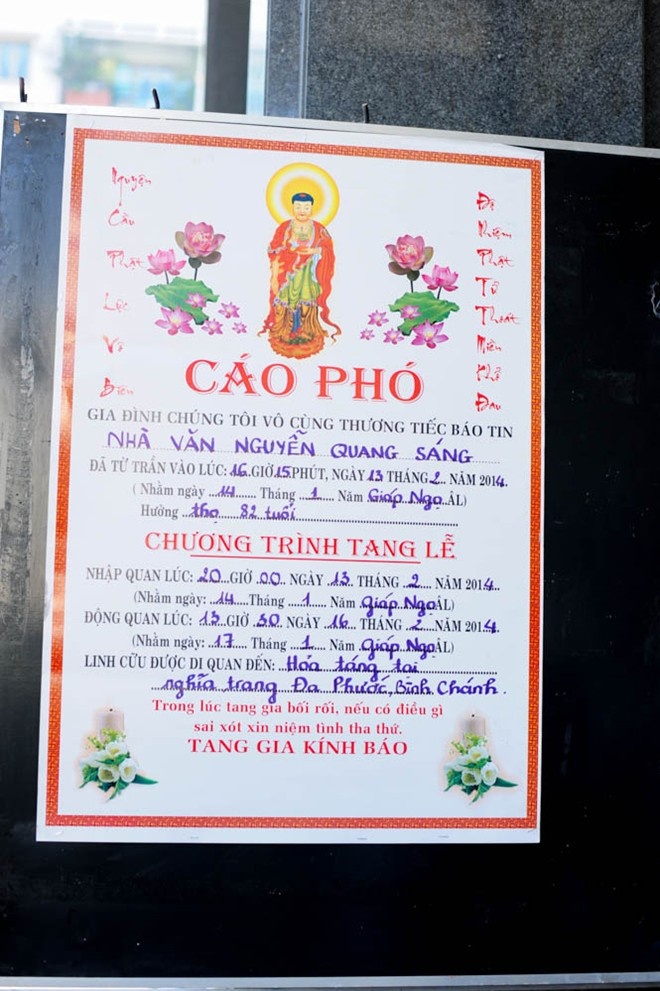 Nguyện
Cầu
Phật
Lực
Vô
Biên
Độ
Nhiệm
Phật
Tử
Thoát
Miền
Khổ
Đau
CÁO PHÓ
GIA ĐÌNH CHÚNG TÔI VÔ CÙNG THƯƠNG TIẾC BÁO TIN
NHÀ VĂN NGUYỄN QUANG SÁNG
ĐÃ TỪ TRẦN VÀO LÚC: 16 GIỜ 15 PHÚT, NGÀY 13 THÁNG 2 NĂM 2014
( Nhằm ngày 14 Tháng 1 Năm Giáp Ngọ ÂL)
Hưởng thọ 82 tuổi
CHƯƠNG TRÌNH TANG LỄ
NHẬP QUAN LÚC: 20 GIỜ 00 NGÀY 13 THÁNG 2 NĂM 2014
(Nhằm ngày: 14 Tháng 1 Năm Giáp Ngọ ÂL)
ĐỘNG QUAN LÚC: 13 GIỜ 30 NGÀY 16 THÁNG 2 NĂM 2014
(Nhằm ngày: 17 Tháng 1 Năm Giáp Ngọ ÂL)
LINH CỮU ĐƯỢC DI QUAN ĐẾN: Hóa táng tại
nghĩa trang Đa Phước, Bình Chánh.
Trong lúc tang gia bối rối, nếu có điều gì
sai xót xin niệm tình tha thứ.
TANG GIA KÍNH BÁO